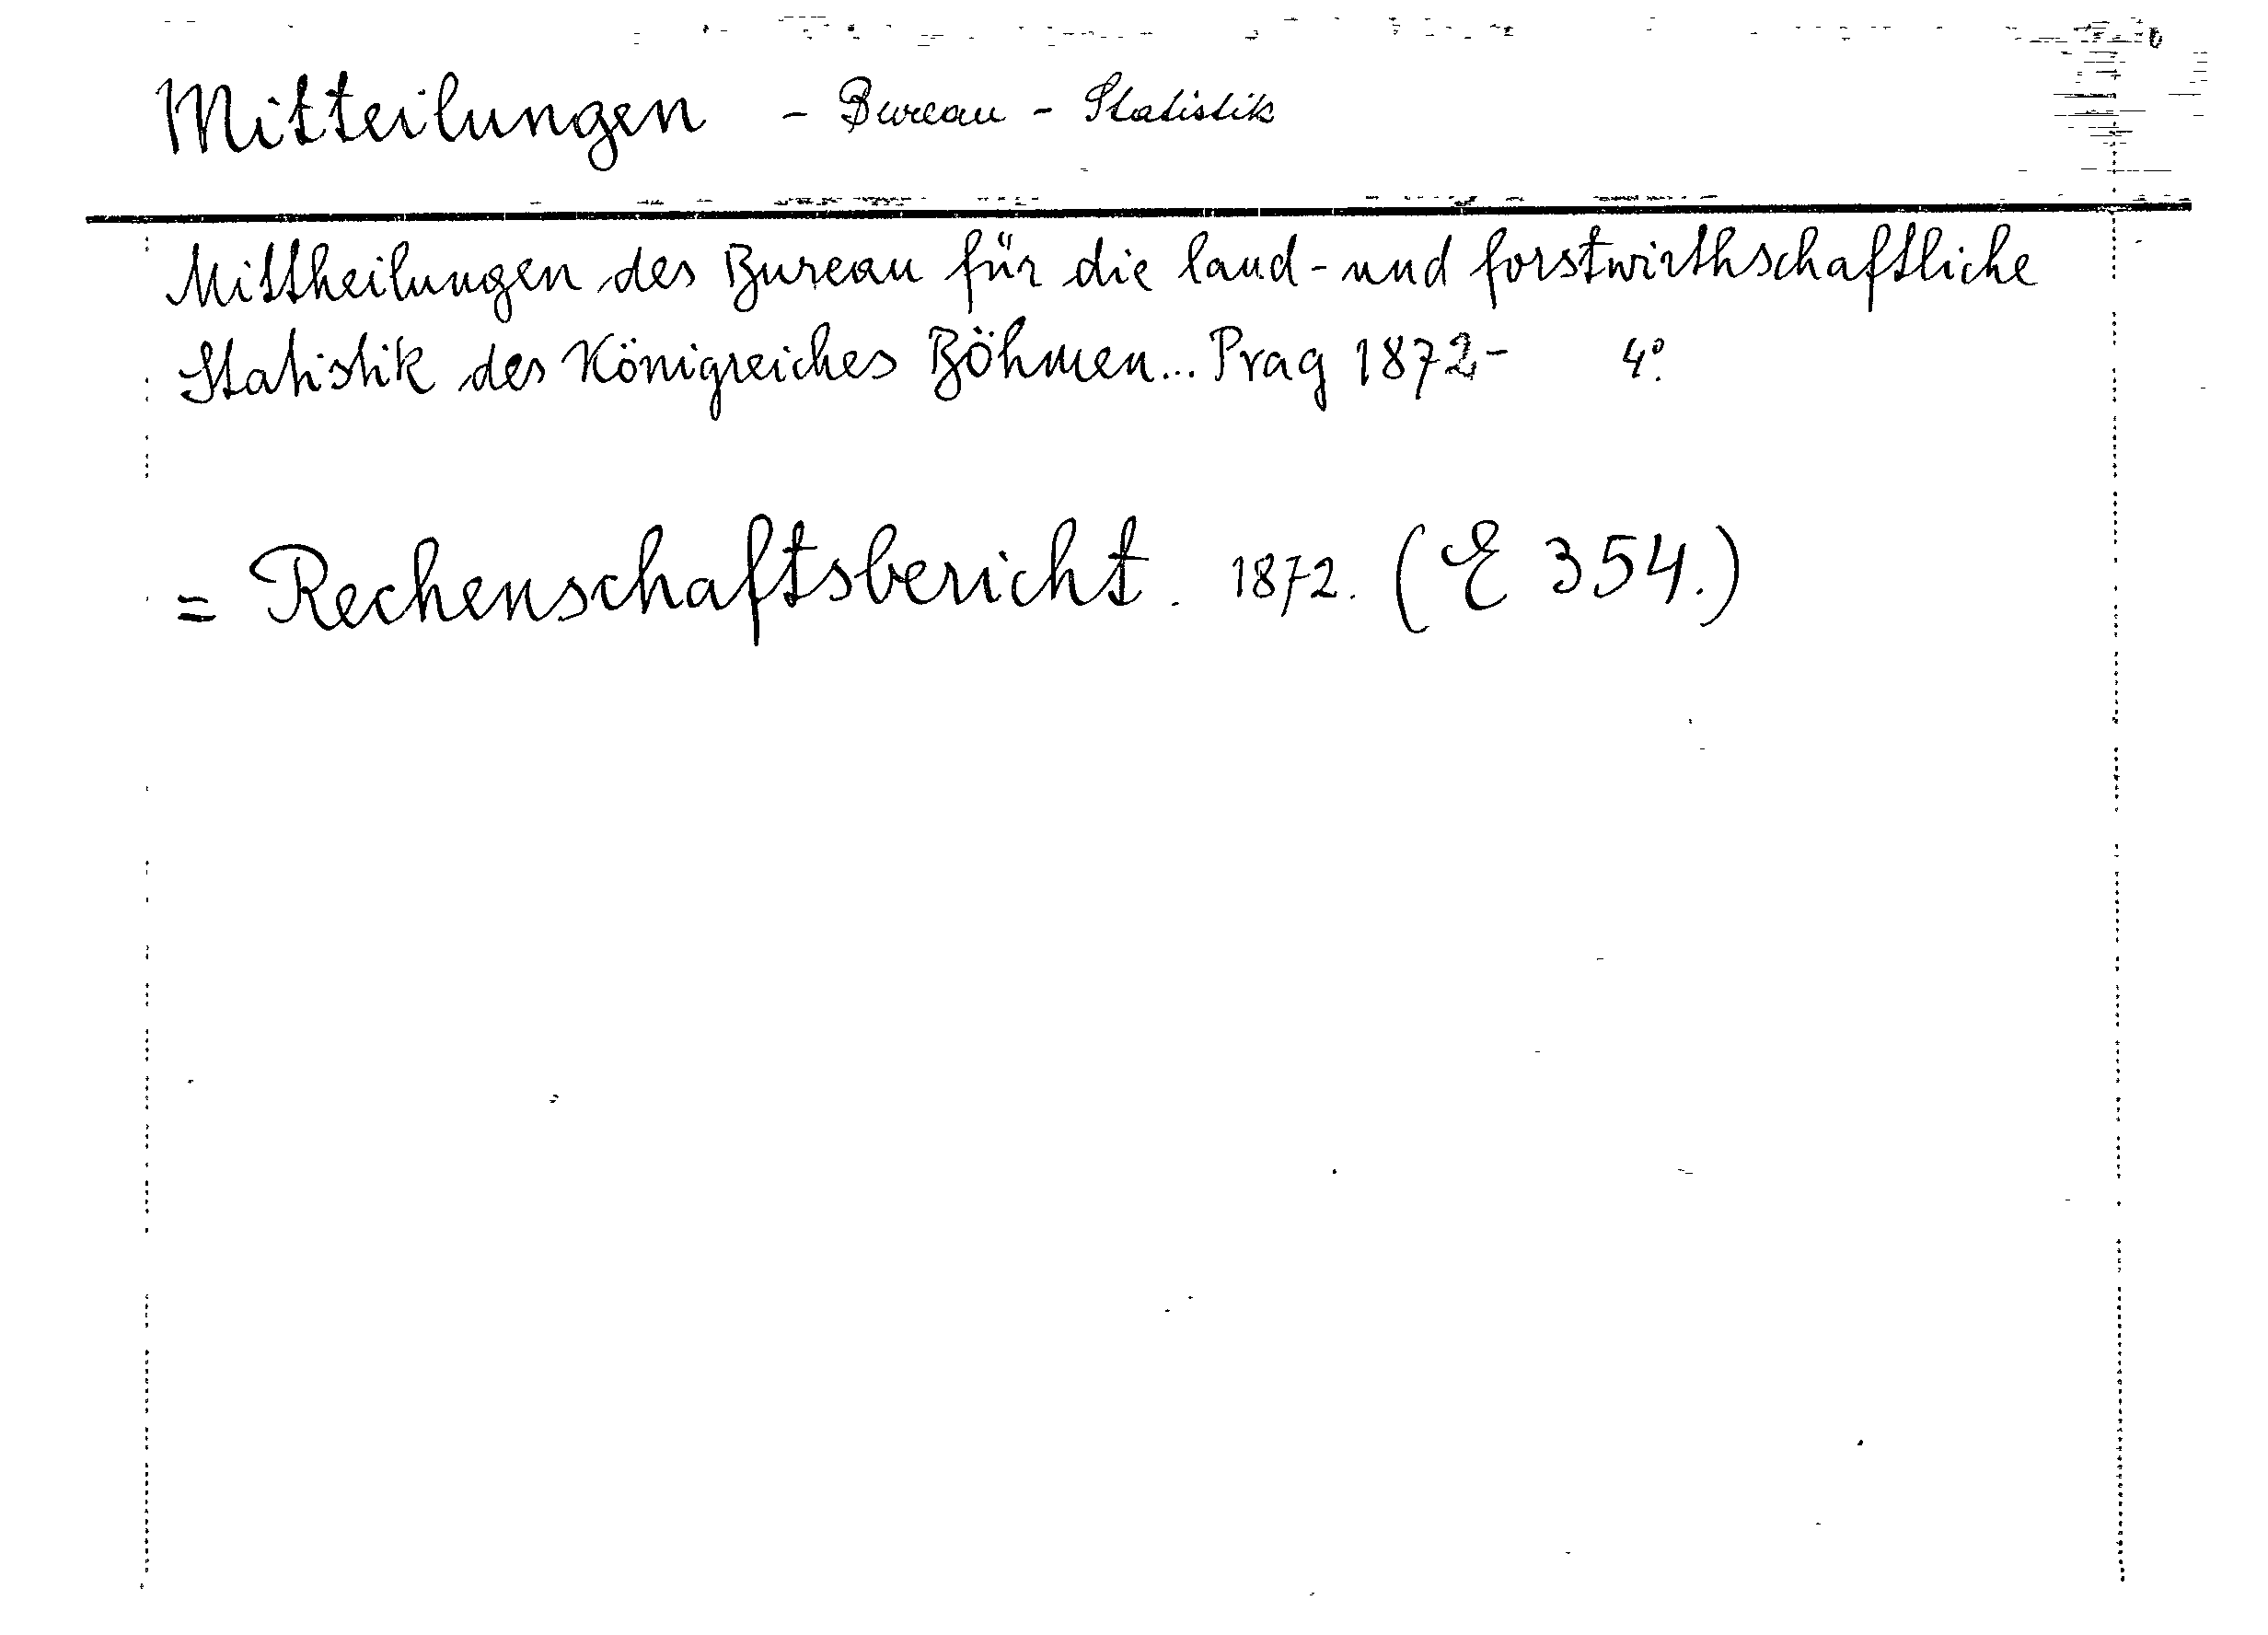 Mitteilungen - Bureau - Statistik
Mittheilungen des Bureau für die land- und forstwirthschaftliche
Statistik des Königreiches Böhmen... Prag 1872- 4°.
= Rechenschaftsbericht. 1872. (E 354.)